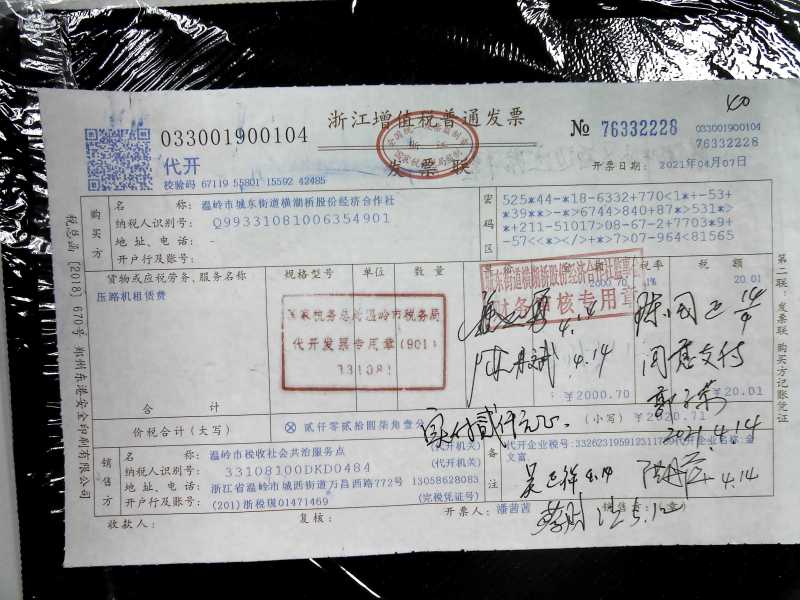 浙江增值税普通发票
发票联
033001900104
代开
校验码 67119 55801 15592 42485
№ 76332228
033001900104
76332228
开票日期: 2021年04月07日
购买方
名 称: 温岭市城东街道横湖桥股份经济合作社
纳税人识别号: Q99331081006354901
地 址、电 话: -
开户行及账号: -
密码区
525*44-*-18-6332+770<1*+-53+
*39**>-*>6744>840+87*>531*>
*+211-51017>08-67-2+7703*9+
-57<<*></+*>7>07-964<81565
货物或应税劳务、服务名称 规格型号 单位 数量 税率 税 额
压路机租赁费 2000.70 1% 20.01
财务审核专用章
国家税务总局温岭市税务局
代开发票专用章(901)
331081
4.14
4.14
同意支付
合 计 ¥2000.70 ¥20.01
价税合计(大写) ⊗ 贰仟零贰拾圆柒角壹分 (小写) ¥2020.71
实付贰仟元正.
2021.4.14
销售方
名 称: 温岭市税收社会共治服务点 (代开机关)
纳税人识别号: 33108100DKD0484 (代开机关)
地 址、电 话: 浙江省温岭市城西街道万昌西路772号 13058628083
开户行及账号: (201) 浙税琐01471469 (完税凭证号)
备注
代开企业名称:金
文富
4.14
4.14
收款人: 复核: 开票人: 潘茜茜
税总函[2018]670号 郑州东港安全印刷有限公司
第二联:发票联 购买方记账凭证